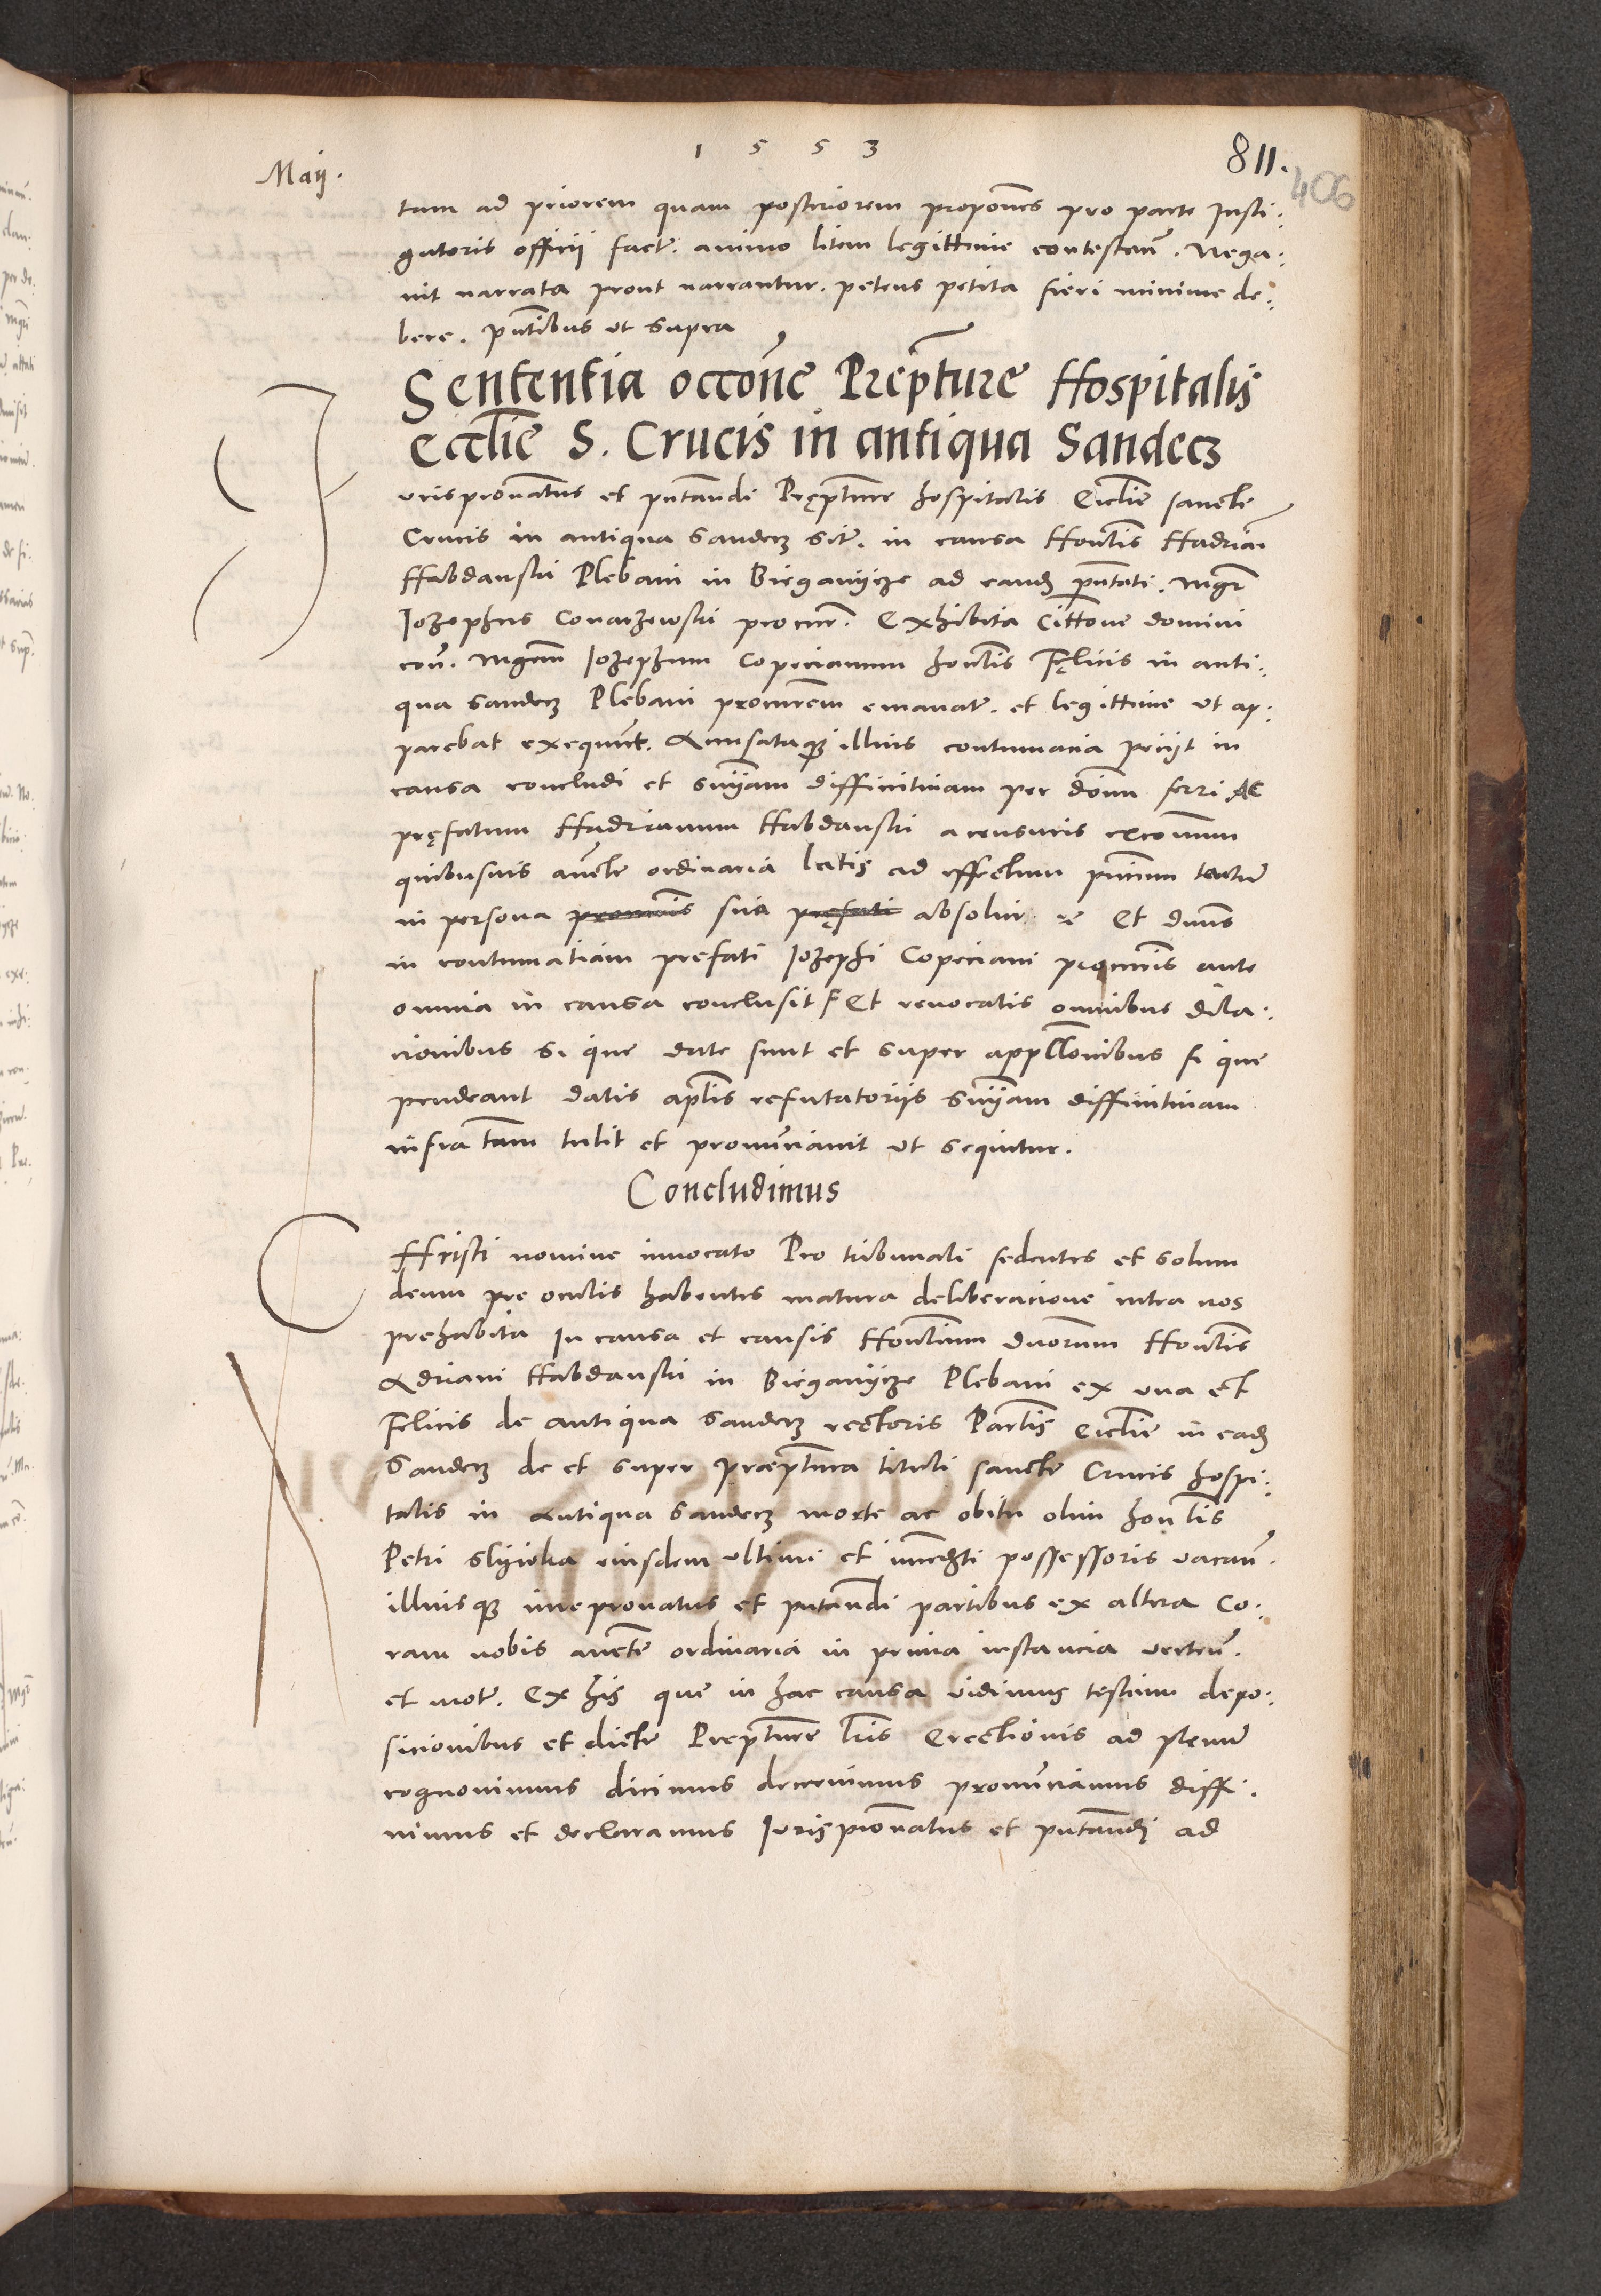 1 5 5 3
811.
406
Maij.
tam ad priorem quam posteriorem propones pro parte Insti:
gatoris officii fact. animo litem legittime contestan. Nega:
uit narrata prout narrantur. petens petita fieri minime de:
bere. pntibus ut supra
Sententia occone Prepture Hospitalis
Ecclie S. Crucis in antiqua Sandecz
Jurispronatus et pntandi Prępture hospitalis Ecclie sancte
Crucis in antiqua Sandecz sit. in causa Honlis Hadriani
Habdanski Plebani in Bieganycze ad eand pntati. Mgr
Iozephus Conarzewski procur. Exhibita cittone domini
con. Mgrm Iozephum Copecianum honlis Fęlicis in anti:
qua Sandecz Plebani procurem emanat. et legittime ut ap:
parebat exequut. Accusataque illius contumacia petijt in
causa concludi et snijam diffinitivam per dnm ferri Ac
pręfatum Hadrianum Habdanski a censuris excomm
quibusuis aucte ordinaria latis ad effectum pntium tantum
in persona procuris sua pręfati absolui Et dnus
in contumatiam prefati Iozephi Copeciani procuris ante
omnia in causa conclusit Et reuocatis omnibus dila:
cionibus si que date sunt et super appellonibus si que
pendeant datis aplis refutatorijs snijam diffinitivam
infra tam tulit et pronunciauit ut sequitur.
Concludimus
CHristi nomine inuocato Pro tribunali sedentes et solum
deum pre oculis habentes matura deliberacione intra nos
prehabita In causa et causis Honlium duorum Honlis
Adriani Habdanski in Bieganycze Plebani ex una et
Felicis de antiqua Sandecz rectoris Parlis Ecclie in ead
Sandecz de et super Præptura tituli sancte Crucis hospi:
talis in Antiqua Sandecz morte ac obitu olim honlis
Petri Slywka eiusdem ultimi et possessoris uacan.
illiusque iurepronatus et pntandi partibus ex altera Co:
ram nobis aucte ordinaria in prima instancia uerten.
et mot. Ex his que in hac causa uidimus testium depo:
sicionibus et dicte Prepture lris Erectionis ad plenum
cognouimus dicimus decernimus pronunciamus diffi:
nimus et declaramus Iurispronatus et pntandi ad